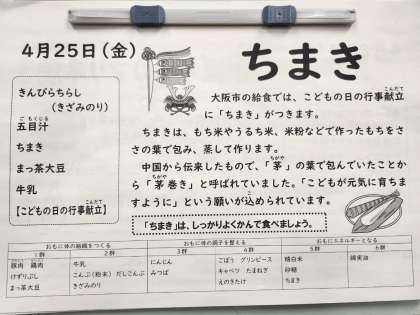 4月25日(金)
ちまき
きんぴらちらし
(きざみのり)
五目汁
ちまき
まっ茶大豆
牛乳
【こどもの日の行事献立】
大阪市の給食では、こどもの日の行事献立
に「ちまき」がつきます。
ちまきは、もち米やうるち米、米粉などで作ったもちをささ
の葉で包み、蒸して作ります。
中国から伝来したもので、「茅」の葉で包んでいたことか
ら「茅巻き」と呼ばれていました。「こどもが元気に育ちま
すように」という願いが込められています。
「ちまき」は、しっかりよくかんで食べましょう。
おもに体の組織をつくる おもに体の調子を整える おもにエネルギーとなる
1群 2群 3群 4群 5群 6群
豚肉 鶏肉 牛乳 にんじん ごぼう グリンピース 精白米 綿実油
けずりぶし こんぶ(粉末) だしこんぶ みつば キャベツ たまねぎ 砂糖
まっ茶大豆 きざみのり えのきたけ ちまき